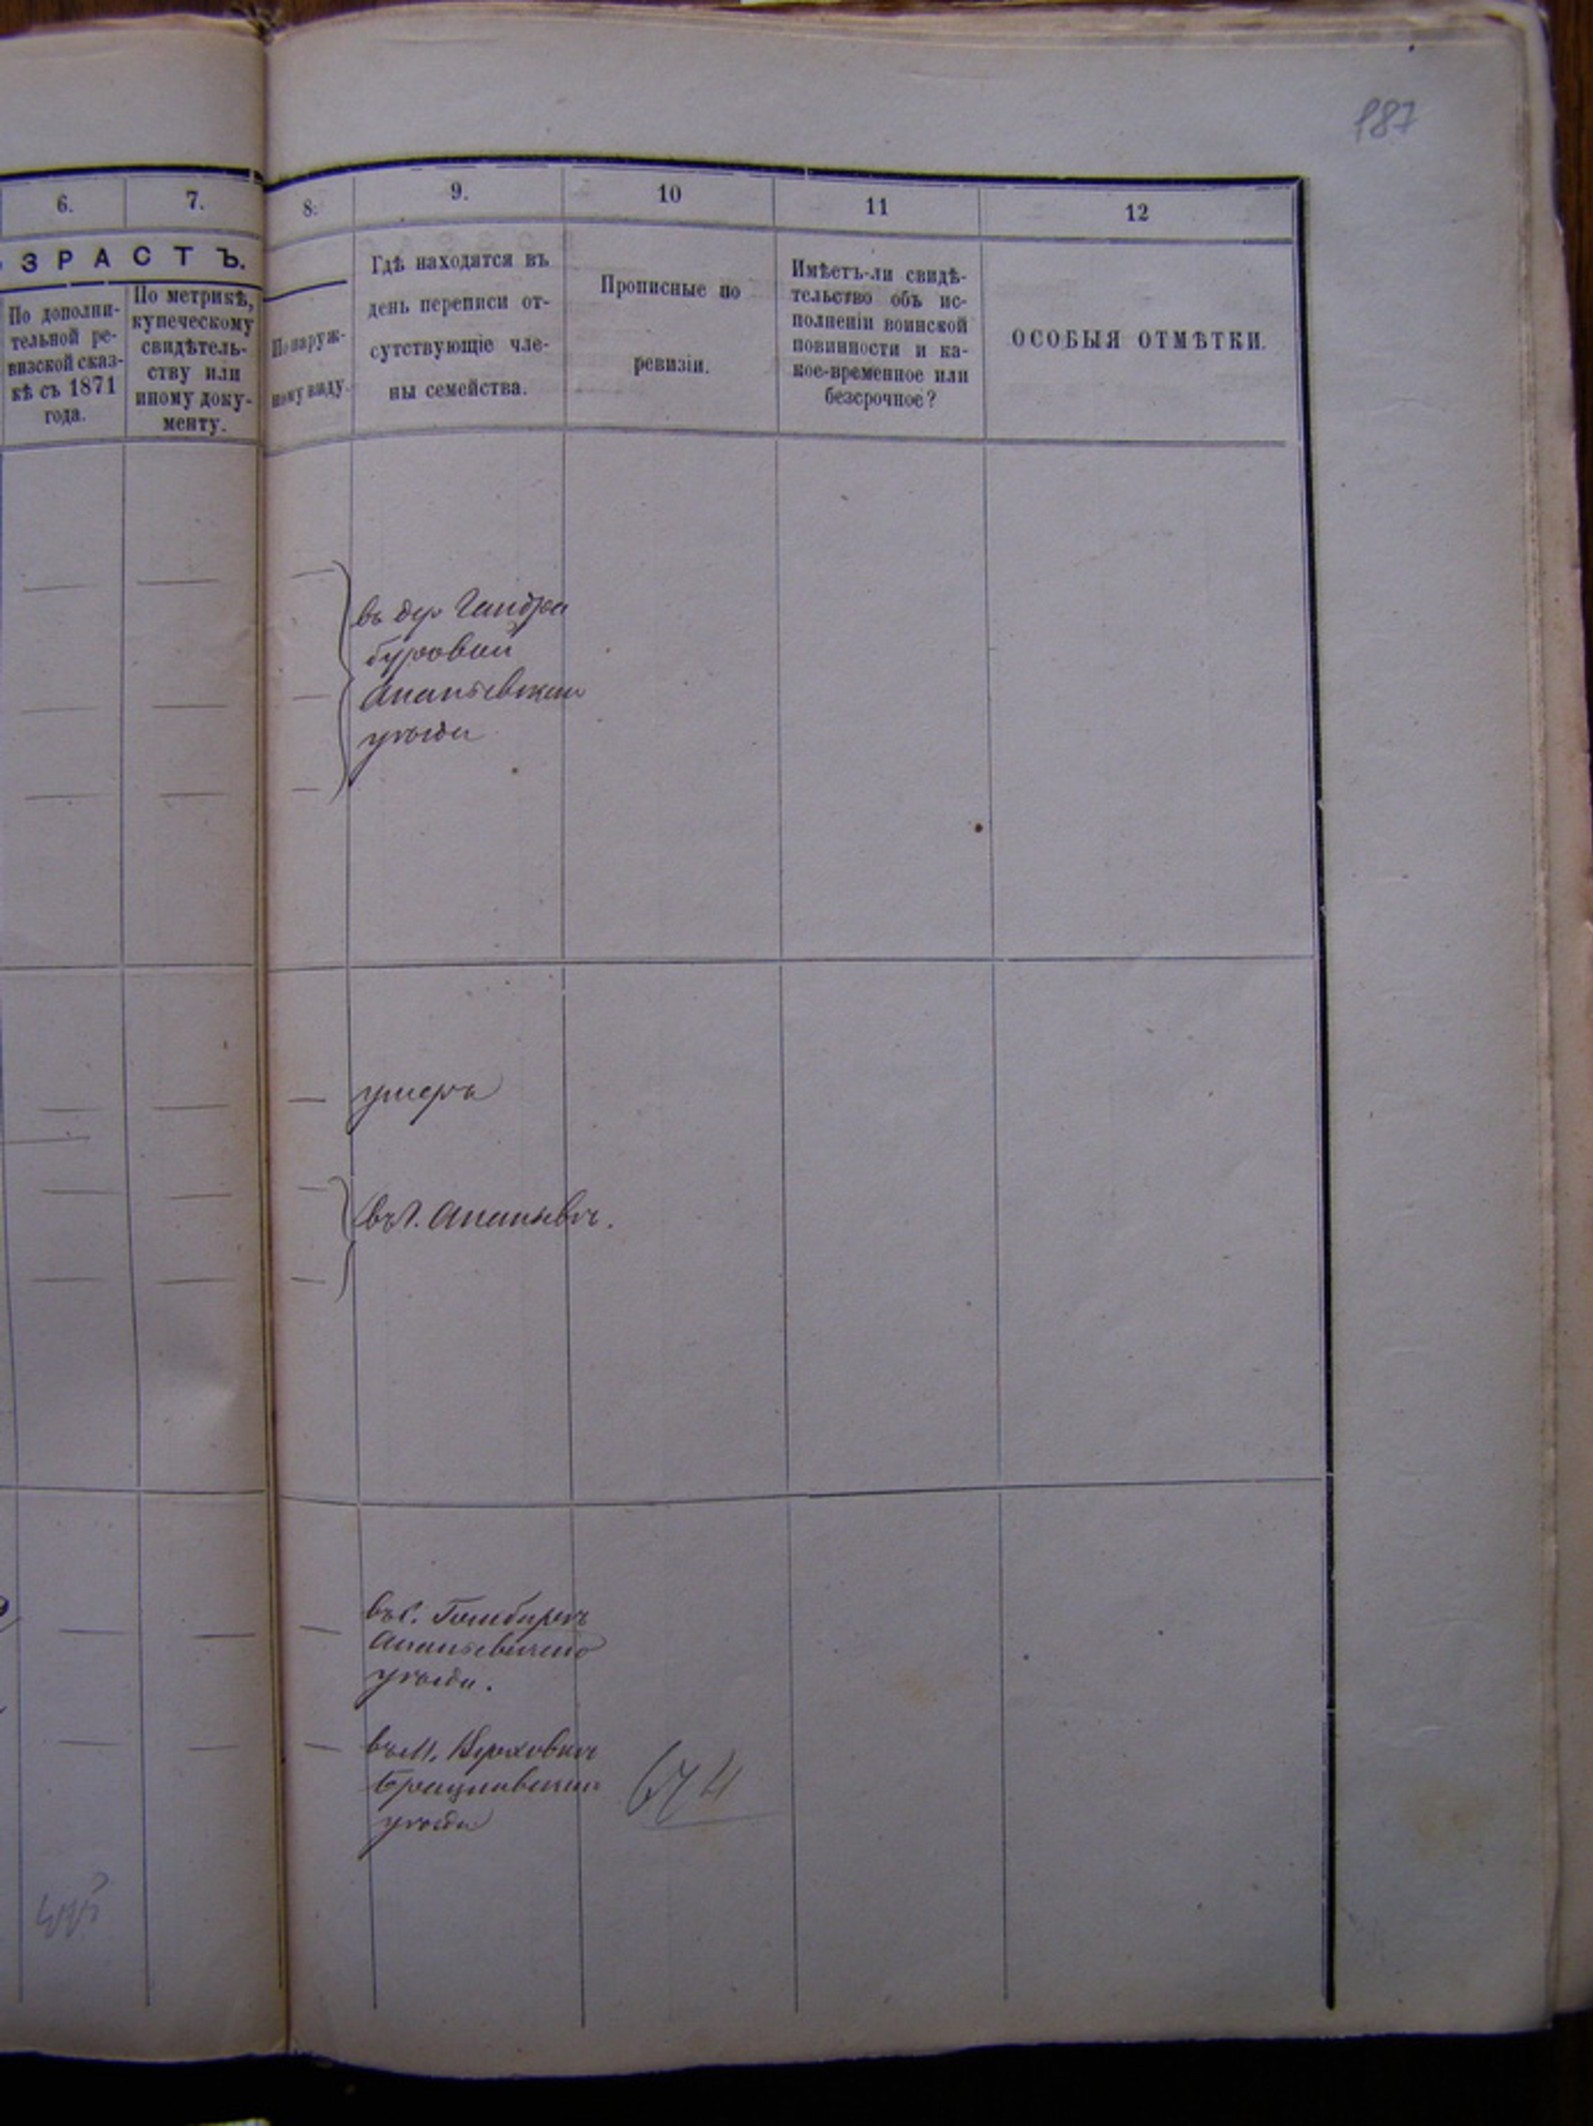 187
6.
7.
8.
9.
10
11
12
ЗРАСТЪ.
По дополни-
тельной ре-
визской сказ-
кѣ съ 1871
года.
По метрикѣ,
купеческому
свидѣтель-
ству или
иному доку-
менту.
По наруж-
ному виду.
Гдѣ находятся въ
день переписи от-
сутствующіе чле-
ны семейства.
Прописные по
ревизіи.
Имѣетъ-ли свидѣ-
тельство объ ис-
полненіи воинской
повинности и ка-
кое-временное или
безсрочное?
ОСОБЫЯ ОТМѢТКИ.
въ дер Гандра
буровой
Ананьевскаго
уѣзда
умеръ
въ г. Ананьевѣ.
въ с.
Ананьевскаго
уѣзда.
въ м.
уѣзда